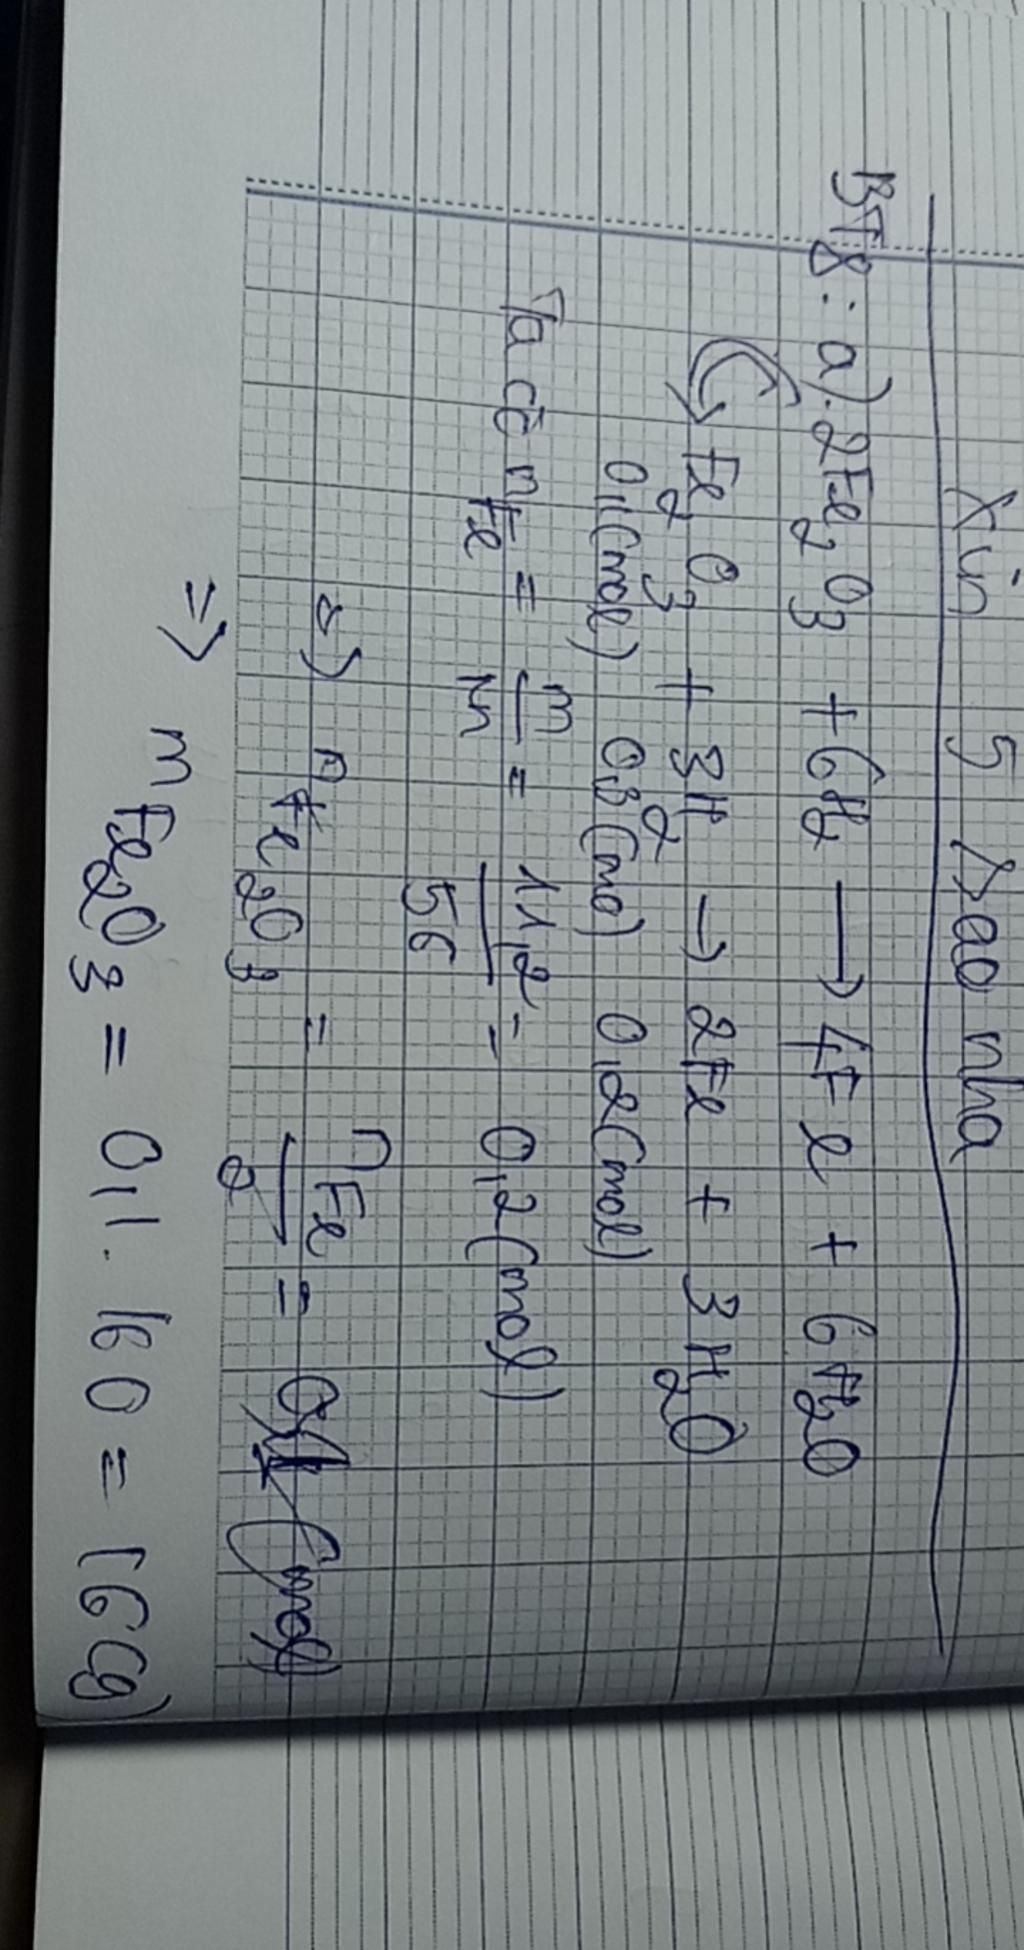 Xin 5 sao nha
BT8: a). 2Fe2O3 + 6H2 → 4Fe + 6H2O
Fe2O3 + 3H2 → 2Fe + 3H2O
0,1(mol) 0,3(mo) 0,2(mol)
Ta có nFe = m/M = 11,2/56 = 0,2(mol)
=> nFe2O3 = nFe/2 = 0,1 (mol)
=> mFe2O3 = 0,1.160 = 16(g)